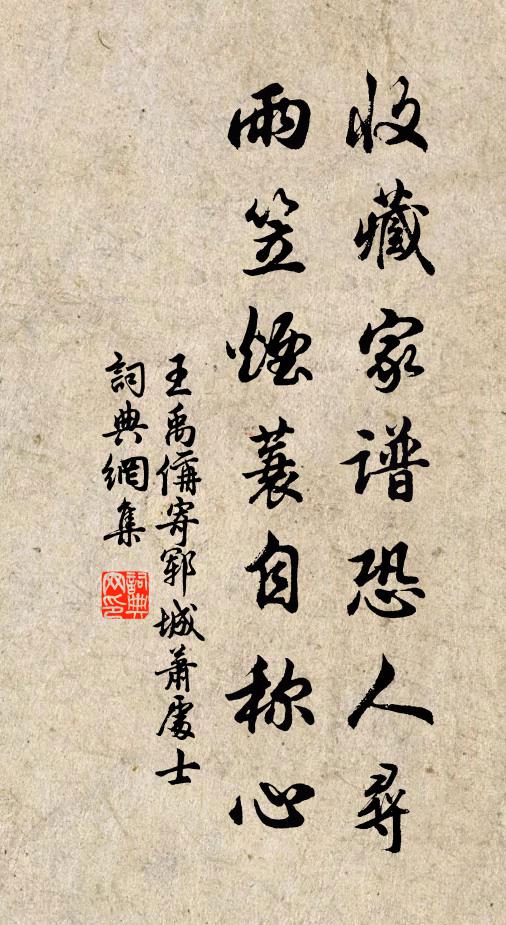 收藏家谱恐人尋
雨笠煙蓑自称心
王禹偁寄鄆城萧處士
詞典網集
詞典网印